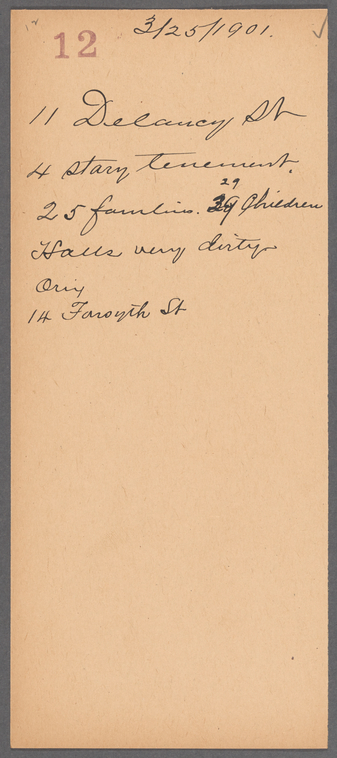 12
3/25/1901.
11 Delancy St
4 story tenement.
29
25 families. 29 Children
Halls very dirty
Orig
14 Forsyth St